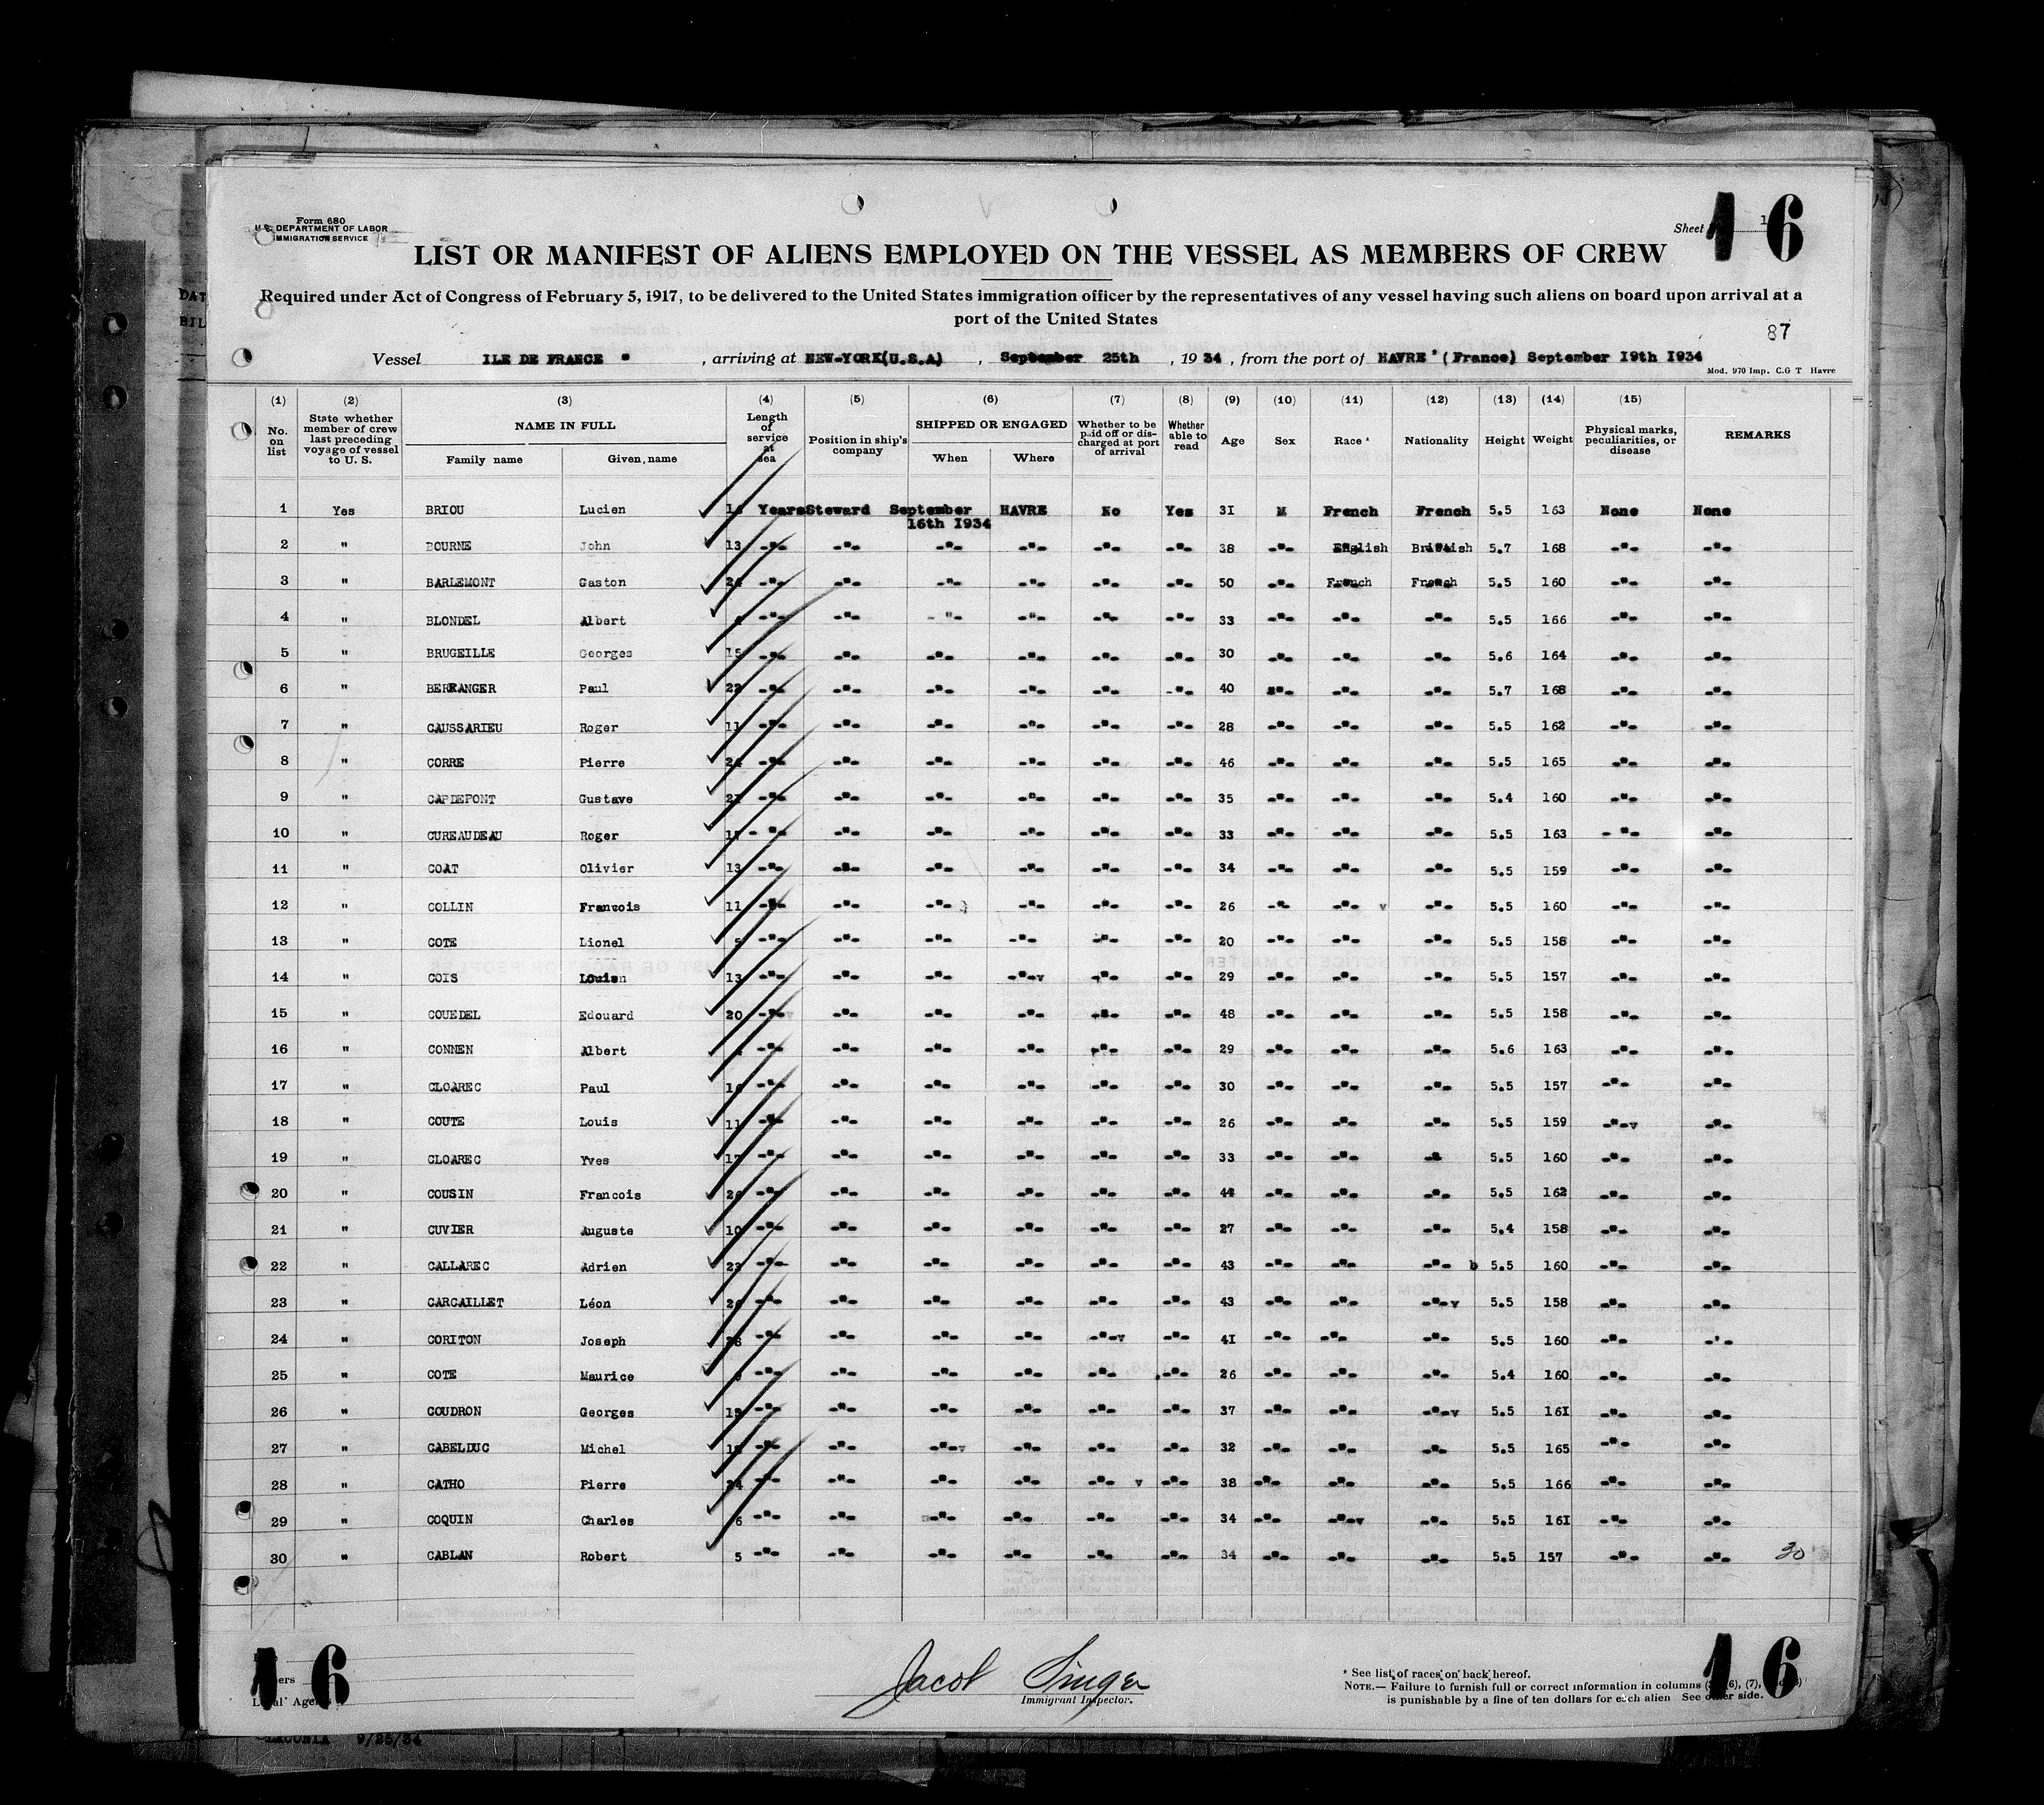 Form 680
U.S. DEPARTMENT OF LABOR
IMMIGRATION SERVICE
Sheet
16
LIST OR MANIFEST OF ALIENS EMPLOYED ON THE VESSEL AS MEMBERS OF CREW
Required under Act of Congress of February 5, 1917, to be delivered to the United States immigration officer by the representatives of any vessel having such aliens on board upon arrival at a
port of the United States
87
Vessel ILE DE FRANCE , arriving at NEW-YORK(U.S.A) , September 25th , 1934 , from the port of HAVRE (France) September 19th 1934
Mod. 970 Imp. C.G T Havre
(1) (2) (3) (4) (5) (6) (7) (8) (9) (10) (11) (12) (13) (14) (15)
No. on list State whether member of crew last preceding voyage of vessel to U. S. NAME IN FULL Family name Given name Length of service at sea Position in ship's company SHIPPED OR ENGAGED When Where Whether to be paid off or discharged at port of arrival Whether able to read Age Sex Race * Nationality Height Weight Physical marks, peculiarities, or disease REMARKS
1 Yes BRIOU Lucien Years Steward September 16th 1934 HAVRE No Yes 31 M French French 5.5 163 None None
2 " BOURNE John 13 -"- -"- -"- -"- -"- -"- 38 -"- English British 5.7 168 -"- -"-
3 " BARLEMONT Gaston -"- -"- -"- -"- -"- -"- 50 -"- French French 5.5 160 -"- -"-
4 " BLONDEL Albert -"- -"- -"- -"- -"- -"- 33 -"- -"- -"- 5.5 166 -"- -"-
5 " BRUGEILLE Georges 15 -"- -"- -"- -"- -"- -"- 30 -"- -"- -"- 5.6 164 -"- -"-
6 " BERRANGER Paul 22 -"- -"- -"- -"- -"- -"- 40 -"- -"- -"- 5.7 168 -"- -"-
7 " CAUSSARIEU Roger 11 -"- -"- -"- -"- -"- -"- 28 -"- -"- -"- 5.5 162 -"- -"-
8 " CORRE Pierre 24 -"- -"- -"- -"- -"- -"- 46 -"- -"- -"- 5.5 165 -"- -"-
9 " CAPDEPONT Gustave -"- -"- -"- -"- -"- -"- 35 -"- -"- -"- 5.4 160 -"- -"-
10 " CUREAUDEAU Roger -"- -"- -"- -"- -"- -"- 33 -"- -"- -"- 5.5 163 -"- -"-
11 " COAT Olivier 13 -"- -"- -"- -"- -"- -"- 34 -"- -"- -"- 5.5 159 -"- -"-
12 " COLLIN Francois 11 -"- -"- -"- -"- -"- -"- 26 -"- -"- -"- 5.5 160 -"- -"-
13 " COTE Lionel 5 -"- -"- -"- -"- -"- -"- 20 -"- -"- -"- 5.5 158 -"- -"-
14 " COIS 13 -"- -"- -"- -"- -"- -"- 29 -"- -"- -"- 5.5 157 -"- -"-
15 " COUEDEL Edouard 20 -"- -"- -"- -"- -"- -"- 48 -"- -"- -"- 5.5 158 -"- -"-
16 " CONNEN Albert -"- -"- -"- -"- -"- -"- 29 -"- -"- -"- 5.6 163 -"- -"-
17 " CLOAREC Paul -"- -"- -"- -"- -"- -"- 30 -"- -"- -"- 5.5 157 -"- -"-
18 " COUTE Louis 11 -"- -"- -"- -"- -"- -"- 26 -"- -"- -"- 5.5 159 -"- -"-
19 " CLOAREC Yves -"- -"- -"- -"- -"- -"- 33 -"- -"- -"- 5.5 160 -"- -"-
20 " COUSIN Francois -"- -"- -"- -"- -"- -"- 44 -"- -"- -"- 5.5 162 -"- -"-
21 " CUVIER Auguste 10 -"- -"- -"- -"- -"- -"- 27 -"- -"- -"- 5.4 158 -"- -"-
22 " CALLAREC Adrien 23 -"- -"- -"- -"- -"- -"- 43 -"- -"- -"- 5.5 160 -"- -"-
23 " CARCAILLET Léon -"- -"- -"- -"- -"- -"- 43 -"- -"- -"- 5.5 158 -"- -"-
24 " CORITON Joseph -"- -"- -"- -"- -"- -"- 41 -"- -"- 5.5 160 -"- -"-
25 " COTE Maurice -"- -"- -"- -"- -"- -"- 26 -"- -"- -"- 5.4 160 -"- -"-
26 " COUDRON Georges -"- -"- -"- -"- -"- -"- 37 -"- -"- -"- 5.5 161 -"- -"-
27 " CABELDUC Michel -"- -"- -"- -"- -"- -"- 32 -"- -"- -"- 5.5 165 -"- -"-
28 " CATHO Pierre 24 -"- -"- -"- -"- -"- -"- 38 -"- -"- -"- 5.5 166 -"- -"-
29 " COQUIN Charles 6 -"- -"- -"- -"- -"- -"- 34 -"- -"- -"- 5.5 161 -"- -"-
30 " CABLAN Robert 5 -"- -"- -"- -"- -"- -"- 34 -"- -"- -"- 5.5 157 -"- -"- 30
16
Jacob Singer
Immigrant Inspector.
* See list of races on back hereof.
NOTE.— Failure to furnish full or correct information in columns (6), (7),
is punishable by a fine of ten dollars for each alien See other side.
16
LACONIA 9/25/34